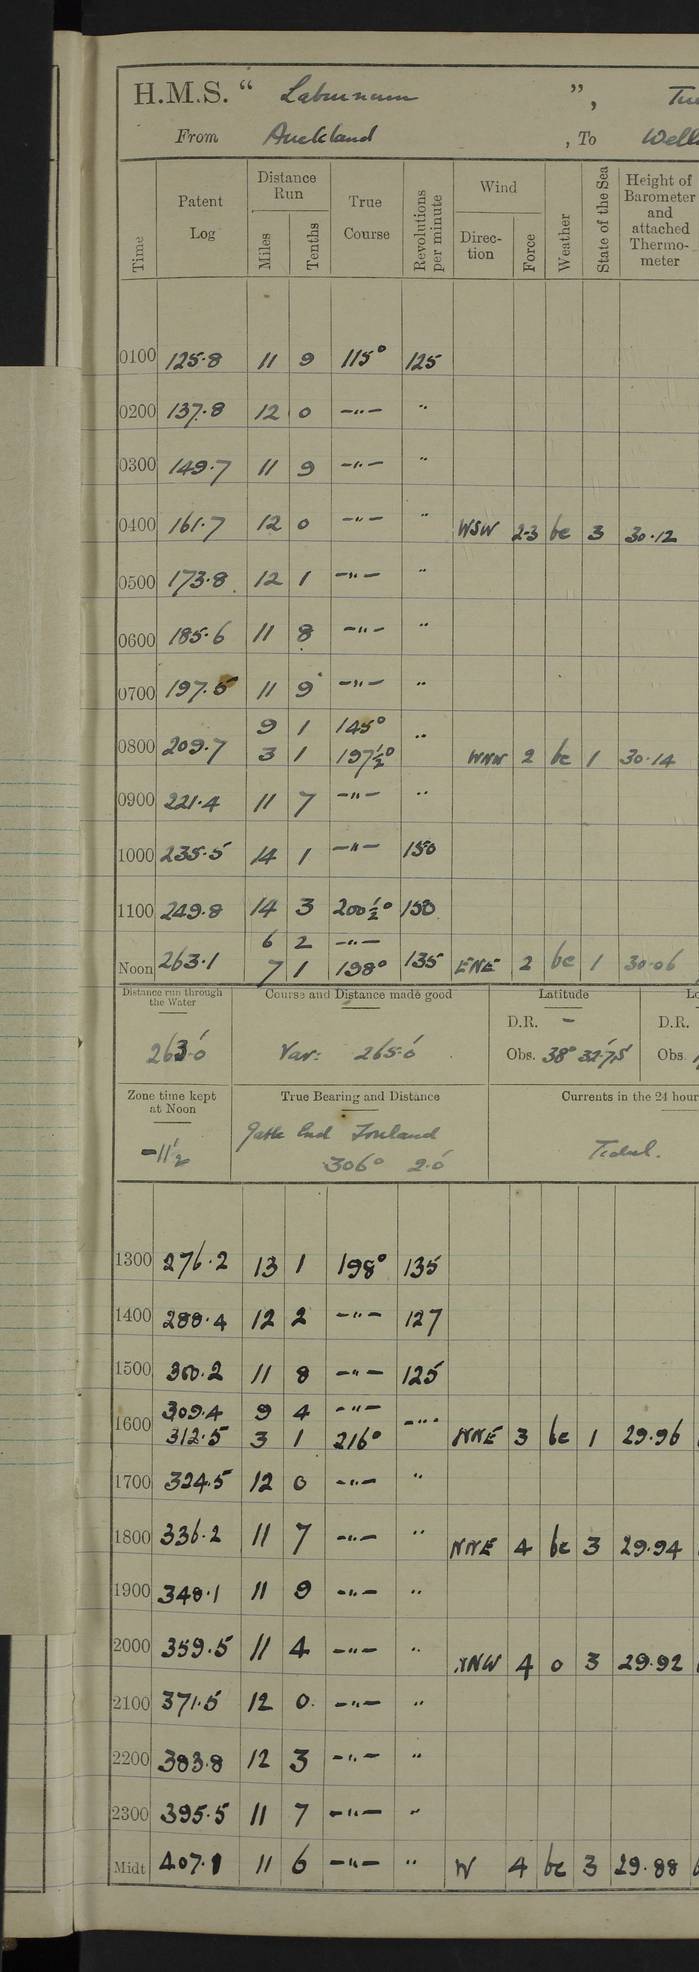 H.M.S. “ Laburnum ”, Tue
From Auckland , To Well
Time Patent Log Distance Run Miles Tenths True Course Revolutions per minute Wind Direction Force Weather State of the Sea Height of Barometer and attached Thermometer
0100 125.8 11 9 115° 125
0200 137.8 12 0 -"- "
0300 149.7 11 9 -"- "
0400 161.7 12 0 -"- " WSW 2-3 bc 3 30.12
0500 173.8 12 1 -"- "
0600 185.6 11 8 -"- "
0700 197.5 11 9 -"- "
9 1 145°
0800 209.7 3 1 197½° " WNW 2 bc 1 30.14
0900 221.4 11 7 -"- "
1000 235.5 14 1 -"- 150
1100 249.8 14 3 200½° 150
6 2 -"-
Noon 263.1 7 1 198° 135 ENE 2 bc 1 30.06
Distance run through the Water Course and Distance made good Latitude Lo
D.R. - D.R.
263.0 Var: 265.0 Obs. 38° 32.75 Obs.
Zone time kept at Noon True Bearing and Distance Currents in the 24 hour
-11½ Gable End Foreland Tidal.
306° 2.0
1300 276.2 13 1 198° 135
1400 288.4 12 2 -"- 127
1500 300.2 11 8 -"- 125
309.4 9 4 -"-
1600 312.5 3 1 216° -"- NNE 3 bc 1 29.96
1700 324.5 12 0 -"- "
1800 336.2 11 7 -"- " NNE 4 bc 3 29.94
1900 348.1 11 9 -"- "
2000 359.5 11 4 -"- " NNW 4 o 3 29.92
2100 371.5 12 0 -"- "
2200 383.8 12 3 -"- "
2300 395.5 11 7 -"- "
Midt 407.1 11 6 -"- " W 4 bc 3 29.88